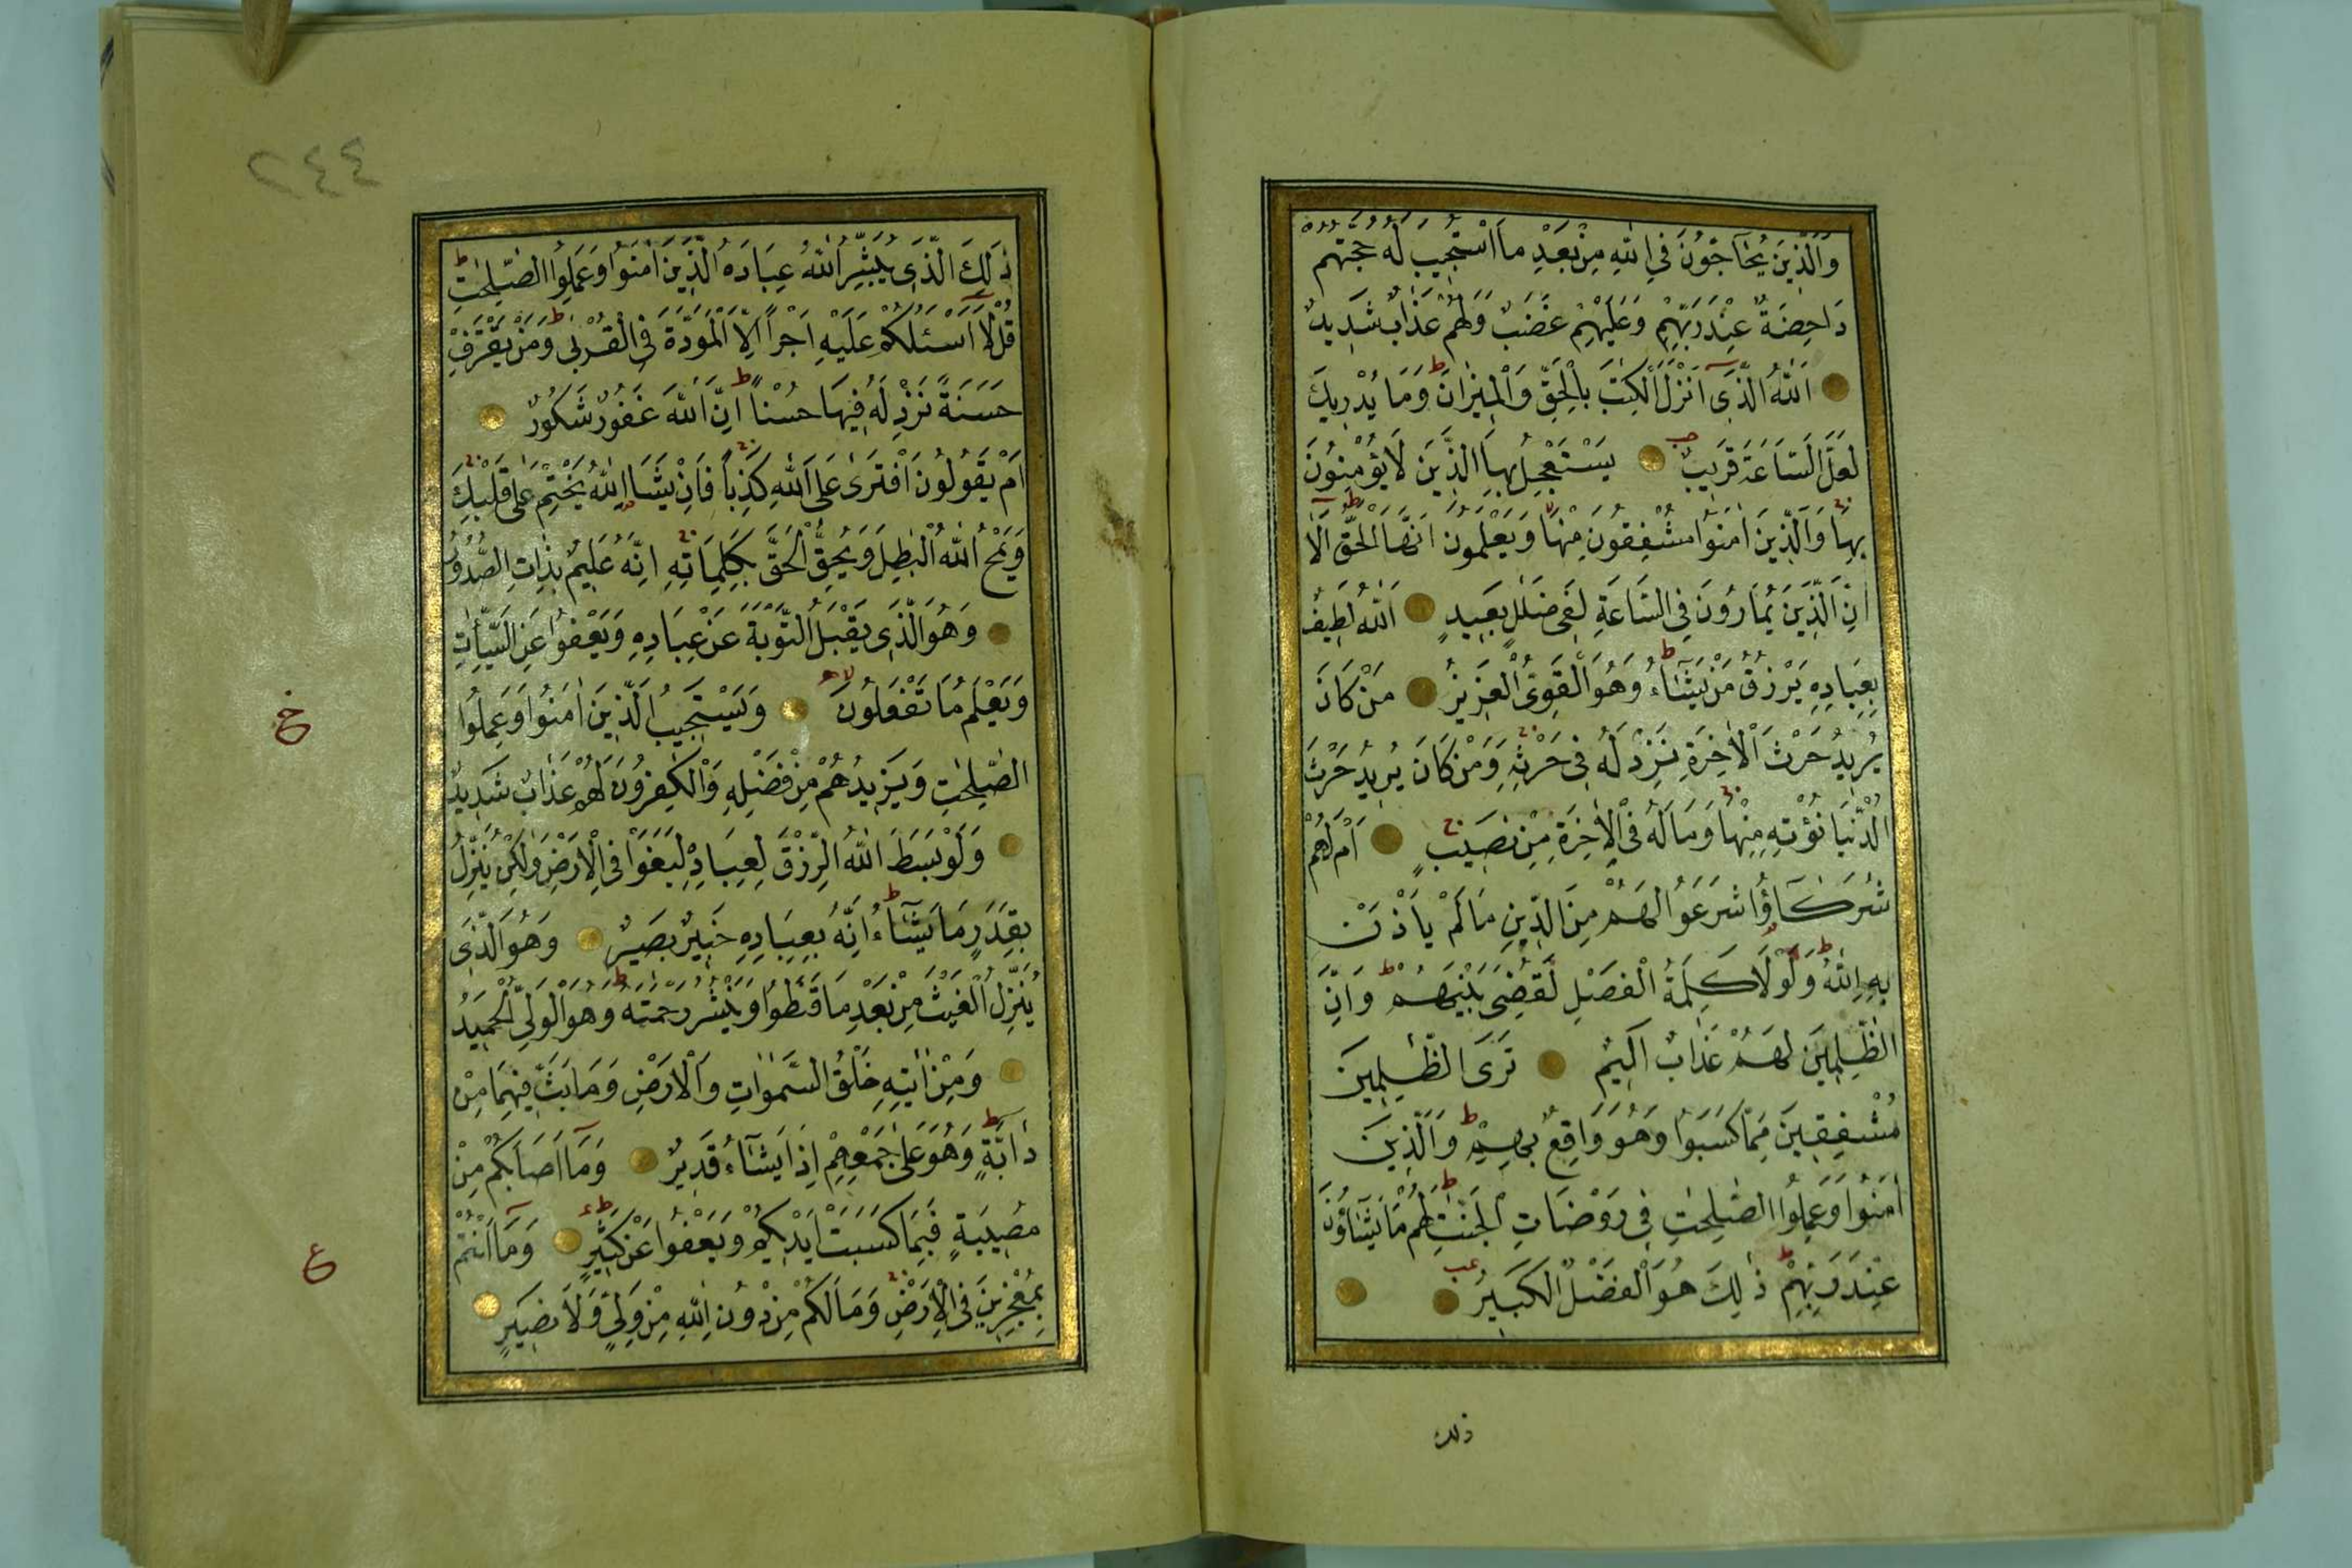 وَالَّذِينَ يُحَاجُّونَ فِي اللّٰهِ مِنْ بَعْدِ مَا اسْتُجِيبَ لَهُ حُجَّتُهُمْ
دَاحِضَةٌ عِنْدَ رَبِّهِمْ وَعَلَيْهِمْ غَضَبٌ وَلَهُمْ عَذَابٌ شَدِيدٌ
اَللّٰهُ الَّذِى اَنْزَلَ الْكِتٰبَ بِالْحَقِّ وَالْمِيزَانَ وَمَا يُدْرِيكَ
لَعَلَّ السَّاعَةَ قَرِيبٌ يَسْتَعْجِلُ بِهَا الَّذِينَ لَا يُؤْمِنُونَ
بِهَا وَالَّذِينَ اٰمَنُوا مُشْفِقُونَ مِنْهَا وَيَعْلَمُونَ اَنَّهَا الْحَقُّ اَلَا
اِنَّ الَّذِينَ يُمَارُونَ فِي السَّاعَةِ لَفِى ضَلٰلٍ بَعِيدٍ اَللّٰهُ لَطِيفٌ
بِعِبَادِهِ يَرْزُقُ مَنْ يَشَاءُ وَهُوَ الْقَوِىُّ الْعَزِيزُ مَنْ كَانَ
يُرِيدُ حَرْثَ الْاٰخِرَةِ نَزِدْ لَهُ فِى حَرْثِهِ وَمَنْ كَانَ يُرِيدُ حَرْثَ
الدُّنْيَا نُؤْتِهِ مِنْهَا وَمَا لَهُ فِى الْاٰخِرَةِ مِنْ نَصِيبٍ اَمْ لَهُمْ
شُرَكَاؤُا شَرَعُوا لَهُمْ مِنَ الدِّينِ مَا لَمْ يَأْذَنْ
بِهِ اللّٰهُ وَلَوْلَا كَلِمَةُ الْفَصْلِ لَقُضِىَ بَيْنَهُمْ وَاِنَّ
الظّٰلِمِينَ لَهُمْ عَذَابٌ اَلِيمٌ تَرَى الظّٰلِمِينَ
مُشْفِقِينَ مِمَّا كَسَبُوا وَهُوَ وَاقِعٌ بِهِمْ وَالَّذِينَ
اٰمَنُوا وَعَمِلُوا الصّٰلِحٰتِ فِى رَوْضَاتِ الْجَنّٰتِ لَهُمْ مَا يَشَاؤُنَ
عِنْدَ رَبِّهِمْ ذٰلِكَ هُوَ الْفَضْلُ الْكَبِيرُ
ذلك
٢٤٤
ذٰلِكَ الَّذِى يُبَشِّرُ اللّٰهُ عِبَادَهُ الَّذِينَ اٰمَنُوا وَعَمِلُوا الصّٰلِحٰتِ
قُلْ لَا اَسْئَلُكُمْ عَلَيْهِ اَجْرًا اِلَّا الْمَوَدَّةَ فِى الْقُرْبٰى وَمَنْ يَقْتَرِفْ
حَسَنَةً نَزِدْ لَهُ فِيهَا حُسْنًا اِنَّ اللّٰهَ غَفُورٌ شَكُورٌ
اَمْ يَقُولُونَ افْتَرٰى عَلَى اللّٰهِ كَذِبًا فَاِنْ يَشَاِ اللّٰهُ يَخْتِمْ عَلٰى قَلْبِكَ
وَيَمْحُ اللّٰهُ الْبٰطِلَ وَيُحِقُّ الْحَقَّ بِكَلِمَاتِهِ اِنَّهُ عَلِيمٌ بِذَاتِ الصُّدُورِ
وَهُوَ الَّذِى يَقْبَلُ التَّوْبَةَ عَنْ عِبَادِهِ وَيَعْفُوا عَنِ السَّيِّاٰتِ
وَيَعْلَمُ مَا تَفْعَلُونَ وَيَسْتَجِيبُ الَّذِينَ اٰمَنُوا وَعَمِلُوا
الصّٰلِحٰتِ وَيَزِيدُهُمْ مِنْ فَضْلِهِ وَالْكٰفِرُونَ لَهُمْ عَذَابٌ شَدِيدٌ
وَلَوْ بَسَطَ اللّٰهُ الرِّزْقَ لِعِبَادِهِ لَبَغَوْا فِى الْاَرْضِ وَلٰكِنْ يُنَزِّلُ
بِقَدَرٍ مَا يَشَاءُ اِنَّهُ بِعِبَادِهِ خَبِيرٌ بَصِيرٌ وَهُوَ الَّذِى
يُنَزِّلُ الْغَيْثَ مِنْ بَعْدِ مَا قَنَطُوا وَيَنْشُرُ رَحْمَتَهُ وَهُوَ الْوَلِىُّ الْحَمِيدُ
وَمِنْ اٰيٰتِهِ خَلْقُ السَّمٰوٰتِ وَالْاَرْضِ وَمَا بَثَّ فِيهِمَا مِنْ
دَابَّةٍ وَهُوَ عَلٰى جَمْعِهِمْ اِذَا يَشَاءُ قَدِيرٌ وَمَا اَصَابَكُمْ مِنْ
مُصِيبَةٍ فَبِمَا كَسَبَتْ اَيْدِيكُمْ وَيَعْفُوا عَنْ كَثِيرٍ وَمَا اَنْتُمْ
بِمُعْجِزِينَ فِى الْاَرْضِ وَمَا لَكُمْ مِنْ دُونِ اللّٰهِ مِنْ وَلِىٍّ وَلَا نَصِيرٍ
ع